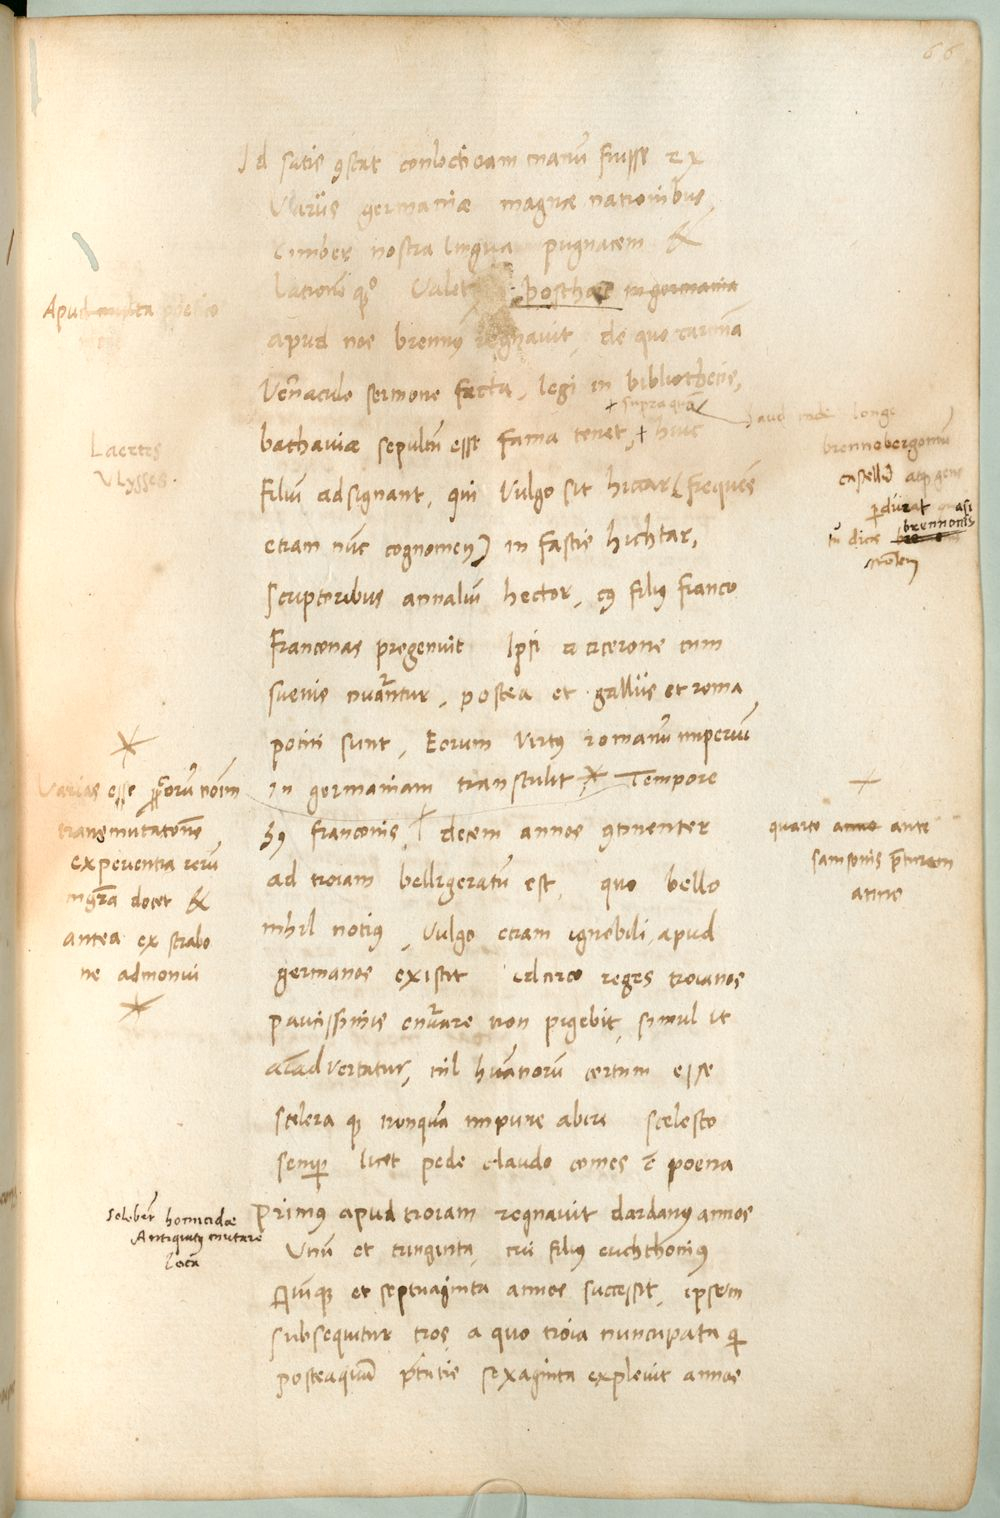 66
Id satis ꝯstat conlocticiam manū fuisse ex
Variis germaniæ magnæ nationibus
Cimber nostra lingua pugnacem &
latronē qꝫ Valet posthac in germania
apud nos brennꝰ regnauit, de quo carmīa
Vernaculo sermone facta, legi in bibliothecis,
+ supra quā
bathauiæ sepultū esse fama tenet, + huic
filiū adsignant, qui Vulgo sit hiccar (frequēs
etiam nūc cognomen) in fastis hichtar,
scriptoribus annaliū hector, cꝰ filiꝰ franco
Franconas progenuit Ipsi a cicerone cum
sueuis nuāntur, postea et galliis et roma
potiti sunt, Eorum Virtꝰ romanū imperiū
in germaniam transtulit * Tempore
hꝰ franconis, + decem annos ꝯtinenter
ad troiam belligeratū est, quo bello
nihil notiꝰ, Vulgo etiam ignobili, apud
germanos existit Idcirco reges troianos
paucissimis enūare non pigebit, simul ut
aīaduertatur, nil huānorū certum esse
scelera qꝫ nunquā impune abire scelesto
semp̄ licet pede claudo comes ē poena
Primꝰ apud troiam regnauit dardanꝰ annos
Unū et triginta, cui filiꝰ erichthoniꝰ
Quinqꝫ et septuaginta annos successit, ipsem
subsequitur tros, a quo troia nuncupata qui
posteaquā p̄tatis sexaginta expleuit annos
Apud
Laertes
Vlysses.
*
Varias esse ꝓꝓriorū noīm
transmutationes
experientia rerū
mgrā docet &
antea ex strabo
ne admonui
*
solebāt homicidæ
Antiquitꝰ mutare
loca
haud inde longe
brennobergomū
castellū atqꝫ gens
ꝑdurat quasi
tu dicas brennonis
montem
+
quarto anno ante
samsonis p̄turam
anno